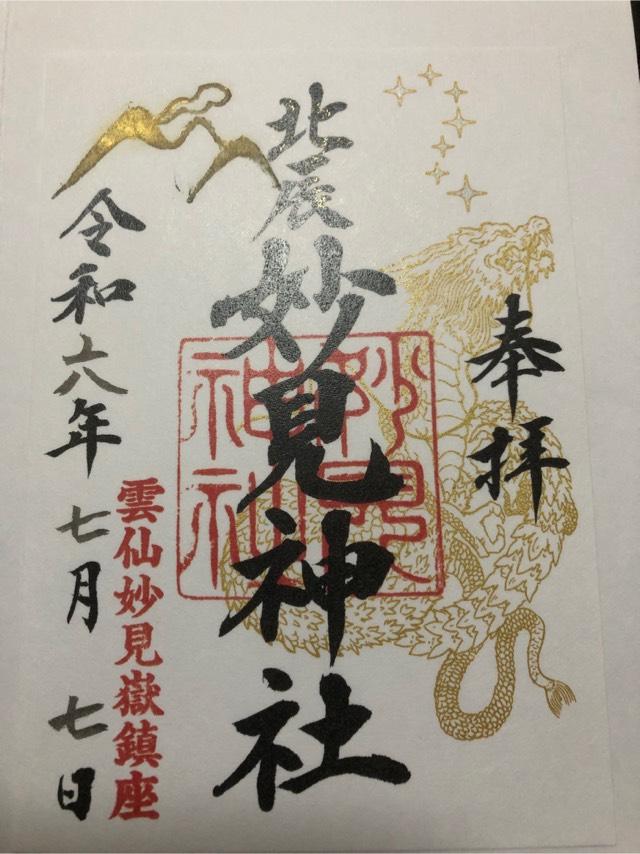 奉拝
北辰妙見神社
妙見
神社
雲仙妙見嶽鎮座
令和六年七月七日